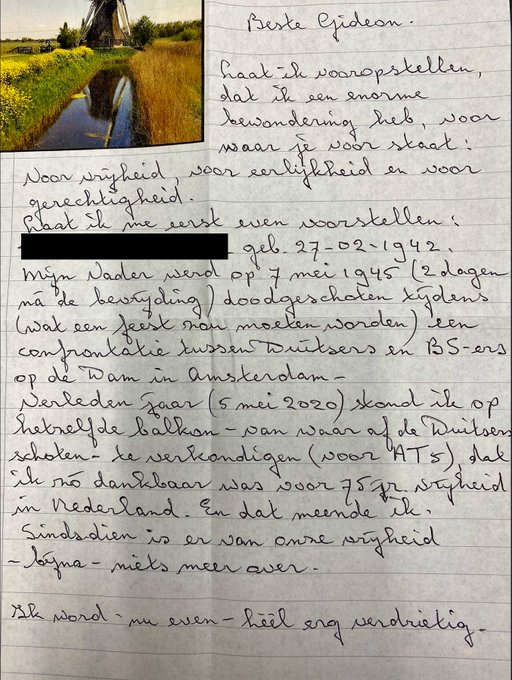 Beste Gideon.
Laat ik vooropstellen,
dat ik een enorme
bewondering heb, voor
waar je voor staat:
Voor vrijheid, voor eerlijkheid en voor
gerechtigheid.
Laat ik me eerst even voorstellen:
geb. 27-02-1942.
Mijn Vader werd op 7 mei 1945 (2 dagen
ná de bevrijding) doodgeschoten tijdens
(wat een feest zou moeten worden) een
confrontatie tussen Duitsers en BS-ers
op de Dam in Amsterdam-
Verleden jaar (5 mei 2020) stond ik op
hetzelfde balkon - van waar af de Duitsers
schoten - te verkondigen (voor AT5), dat
ik zó dankbaar was voor 75 jr. vrijheid
in Nederland. En dat meende ik.
Sindsdien is er van onze vrijheid
- bijna - niets meer over.
Ik word - nu even - héél erg verdrietig.